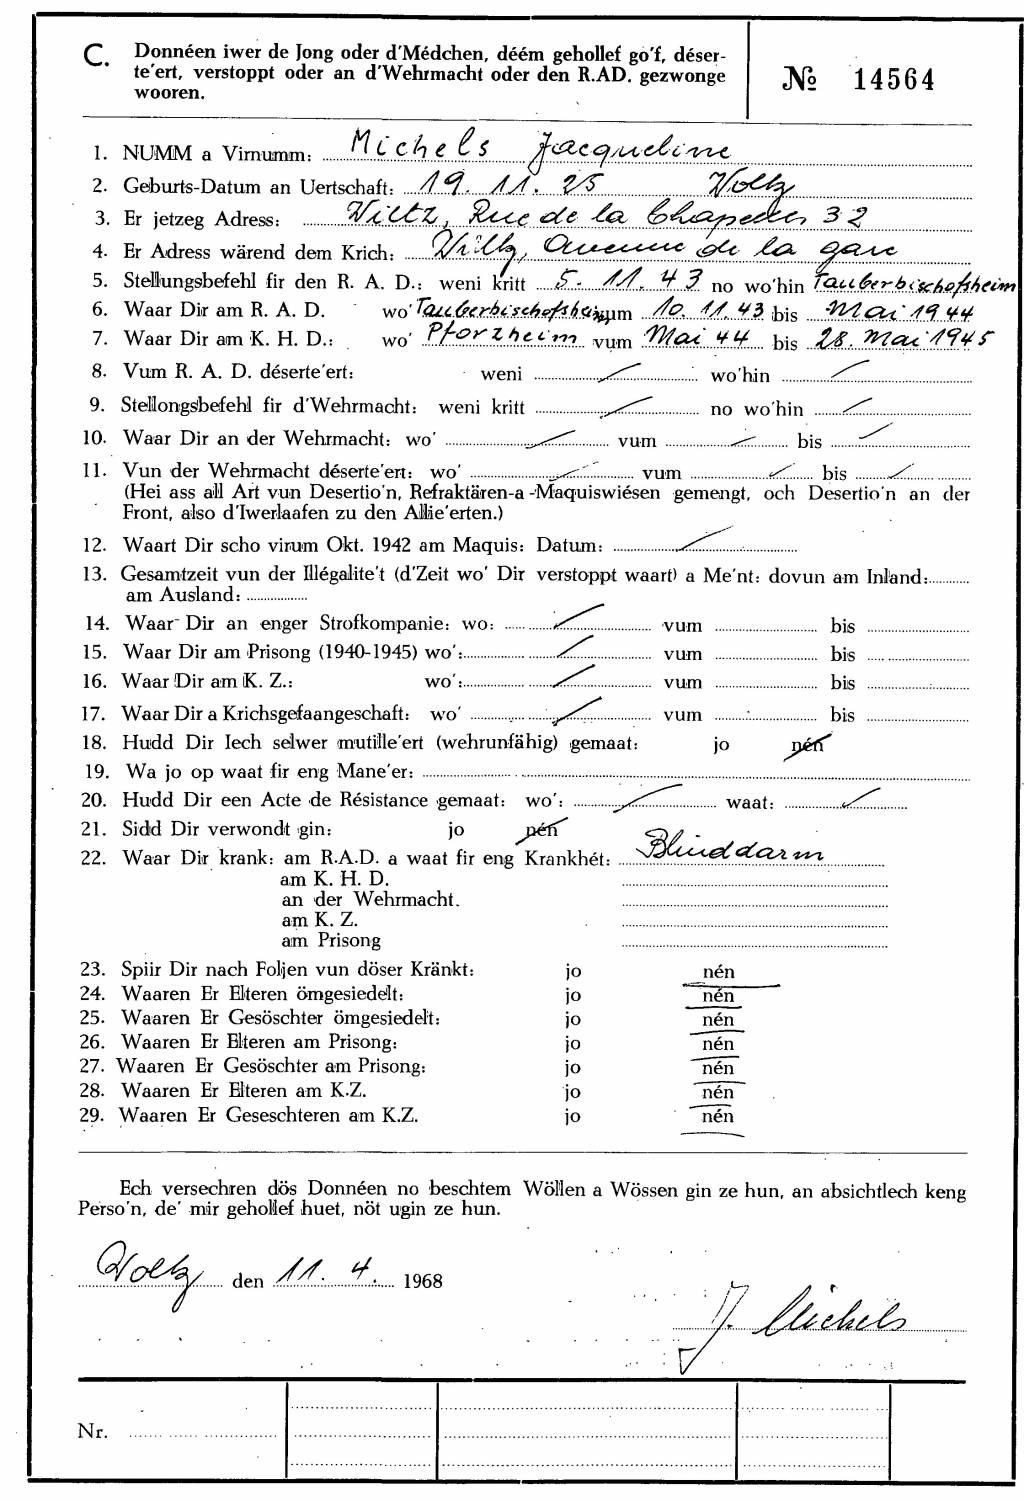 C. Donnéen iwer de Jong oder d'Médchen, déém gehollef go'f, déser-
te'ert, verstoppt oder an d'Wehrmacht oder den R.AD. gezwonge
wooren.
№ 14564
1. NUMM a Virnumm: Michels Jacqueline
2. Geburts-Datum an Uertschaft: 19. 11. 25 Woltz
3. Er jetzeg Adress: Wiltz, Rue de la Chapelle 32
4. Er Adress wärend dem Krich: Wiltz, Avenue de la gare
5. Stellungsbefehl fir den R. A. D.: weni kritt 5. 11. 43 no wo'hin Tauberbischofsheim
6. Waar Dir am R. A. D. wo' Tauberbischofsheim vum 10. 11. 43 bis Mai 1944
7. Waar Dir am K. H. D.: wo' Pforzheim vum Mai 44 bis 28. Mai 1945
8. Vum R. A. D. déserte'ert: weni wo'hin
9. Stellongsbefehl fir d'Wehrmacht: weni kritt no wo'hin
10. Waar Dir an der Wehrmacht: wo' vum bis
11. Vun der Wehrmacht déserte'ert: wo' vum bis
(Hei ass all Art vun Desertio'n, Refraktären-a-Maquiswiésen gemengt, och Desertio'n an der
Front, also d'Iwerlaafen zu den Allie'erten.)
12. Waart Dir scho virum Okt. 1942 am Maquis: Datum:
13. Gesamtzeit vun der Illégalite't (d'Zeit wo' Dir verstoppt waart) a Me'nt: dovun am Inland:
am Ausland:
14. Waar Dir an enger Strofkompanie: wo: vum bis
15. Waar Dir am Prisong (1940-1945) wo': vum bis
16. Waar Dir am K. Z.: wo': vum bis
17. Waar Dir a Krichsgefaangeschaft: wo' vum bis
18. Hudd Dir Iech selwer mutille'ert (wehrunfähig) gemaat: jo nén
19. Wa jo op waat fir eng Mane'er:
20. Hudd Dir een Acte de Résistance gemaat: wo': waat:
21. Sidd Dir verwondt gin: jo nén
22. Waar Dir krank: am R.A.D. a waat fir eng Krankhét: Blinddarm
am K. H. D.
an der Wehrmacht.
am K. Z.
am Prisong
23. Spiir Dir nach Foljen vun döser Kränkt: jo nén
24. Waaren Er Elteren ömgesiedelt: jo nén
25. Waaren Er Gesöschter ömgesiedelt: jo nén
26. Waaren Er Elteren am Prisong: jo nén
27. Waaren Er Gesöschter am Prisong: jo nén
28. Waaren Er Elteren am K.Z. jo nén
29. Waaren Er Geseschteren am K.Z. jo nén
Ech versechren dös Donnéen no beschtem Wöllen a Wössen gin ze hun, an absichtlech keng
Perso'n, de' mir gehollef huet, nöt ugin ze hun.
Woltz den 11. 4. 1968
J. Michels
Nr.